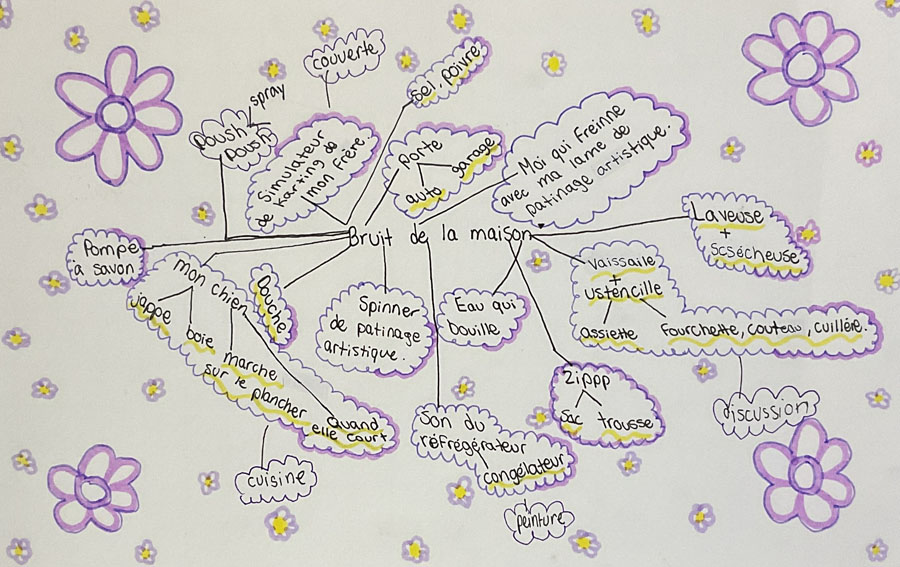 couverte
sel, poivre
spray
Poush
Poush
Simulateur
de karting de
mon frère.
Porte
auto
garage
Moi qui freinne
avec ma lame de
patinage artistique.
Bruit de la maison
Laveuse
+
Scsécheuse
Pompe
à savon
mon chien
jappe
boie
marche
sur le plancher
Quand
elle court
Douche
Spinner
de patinage
artistique.
Eau qui
bouille
vaissaile
+
ustencille
assiette
Fourchette, couteau, cuillère.
Zippp
Sac
trousse
discussion
Son du
réfrégérateur
congélateur
cuisine
peinture